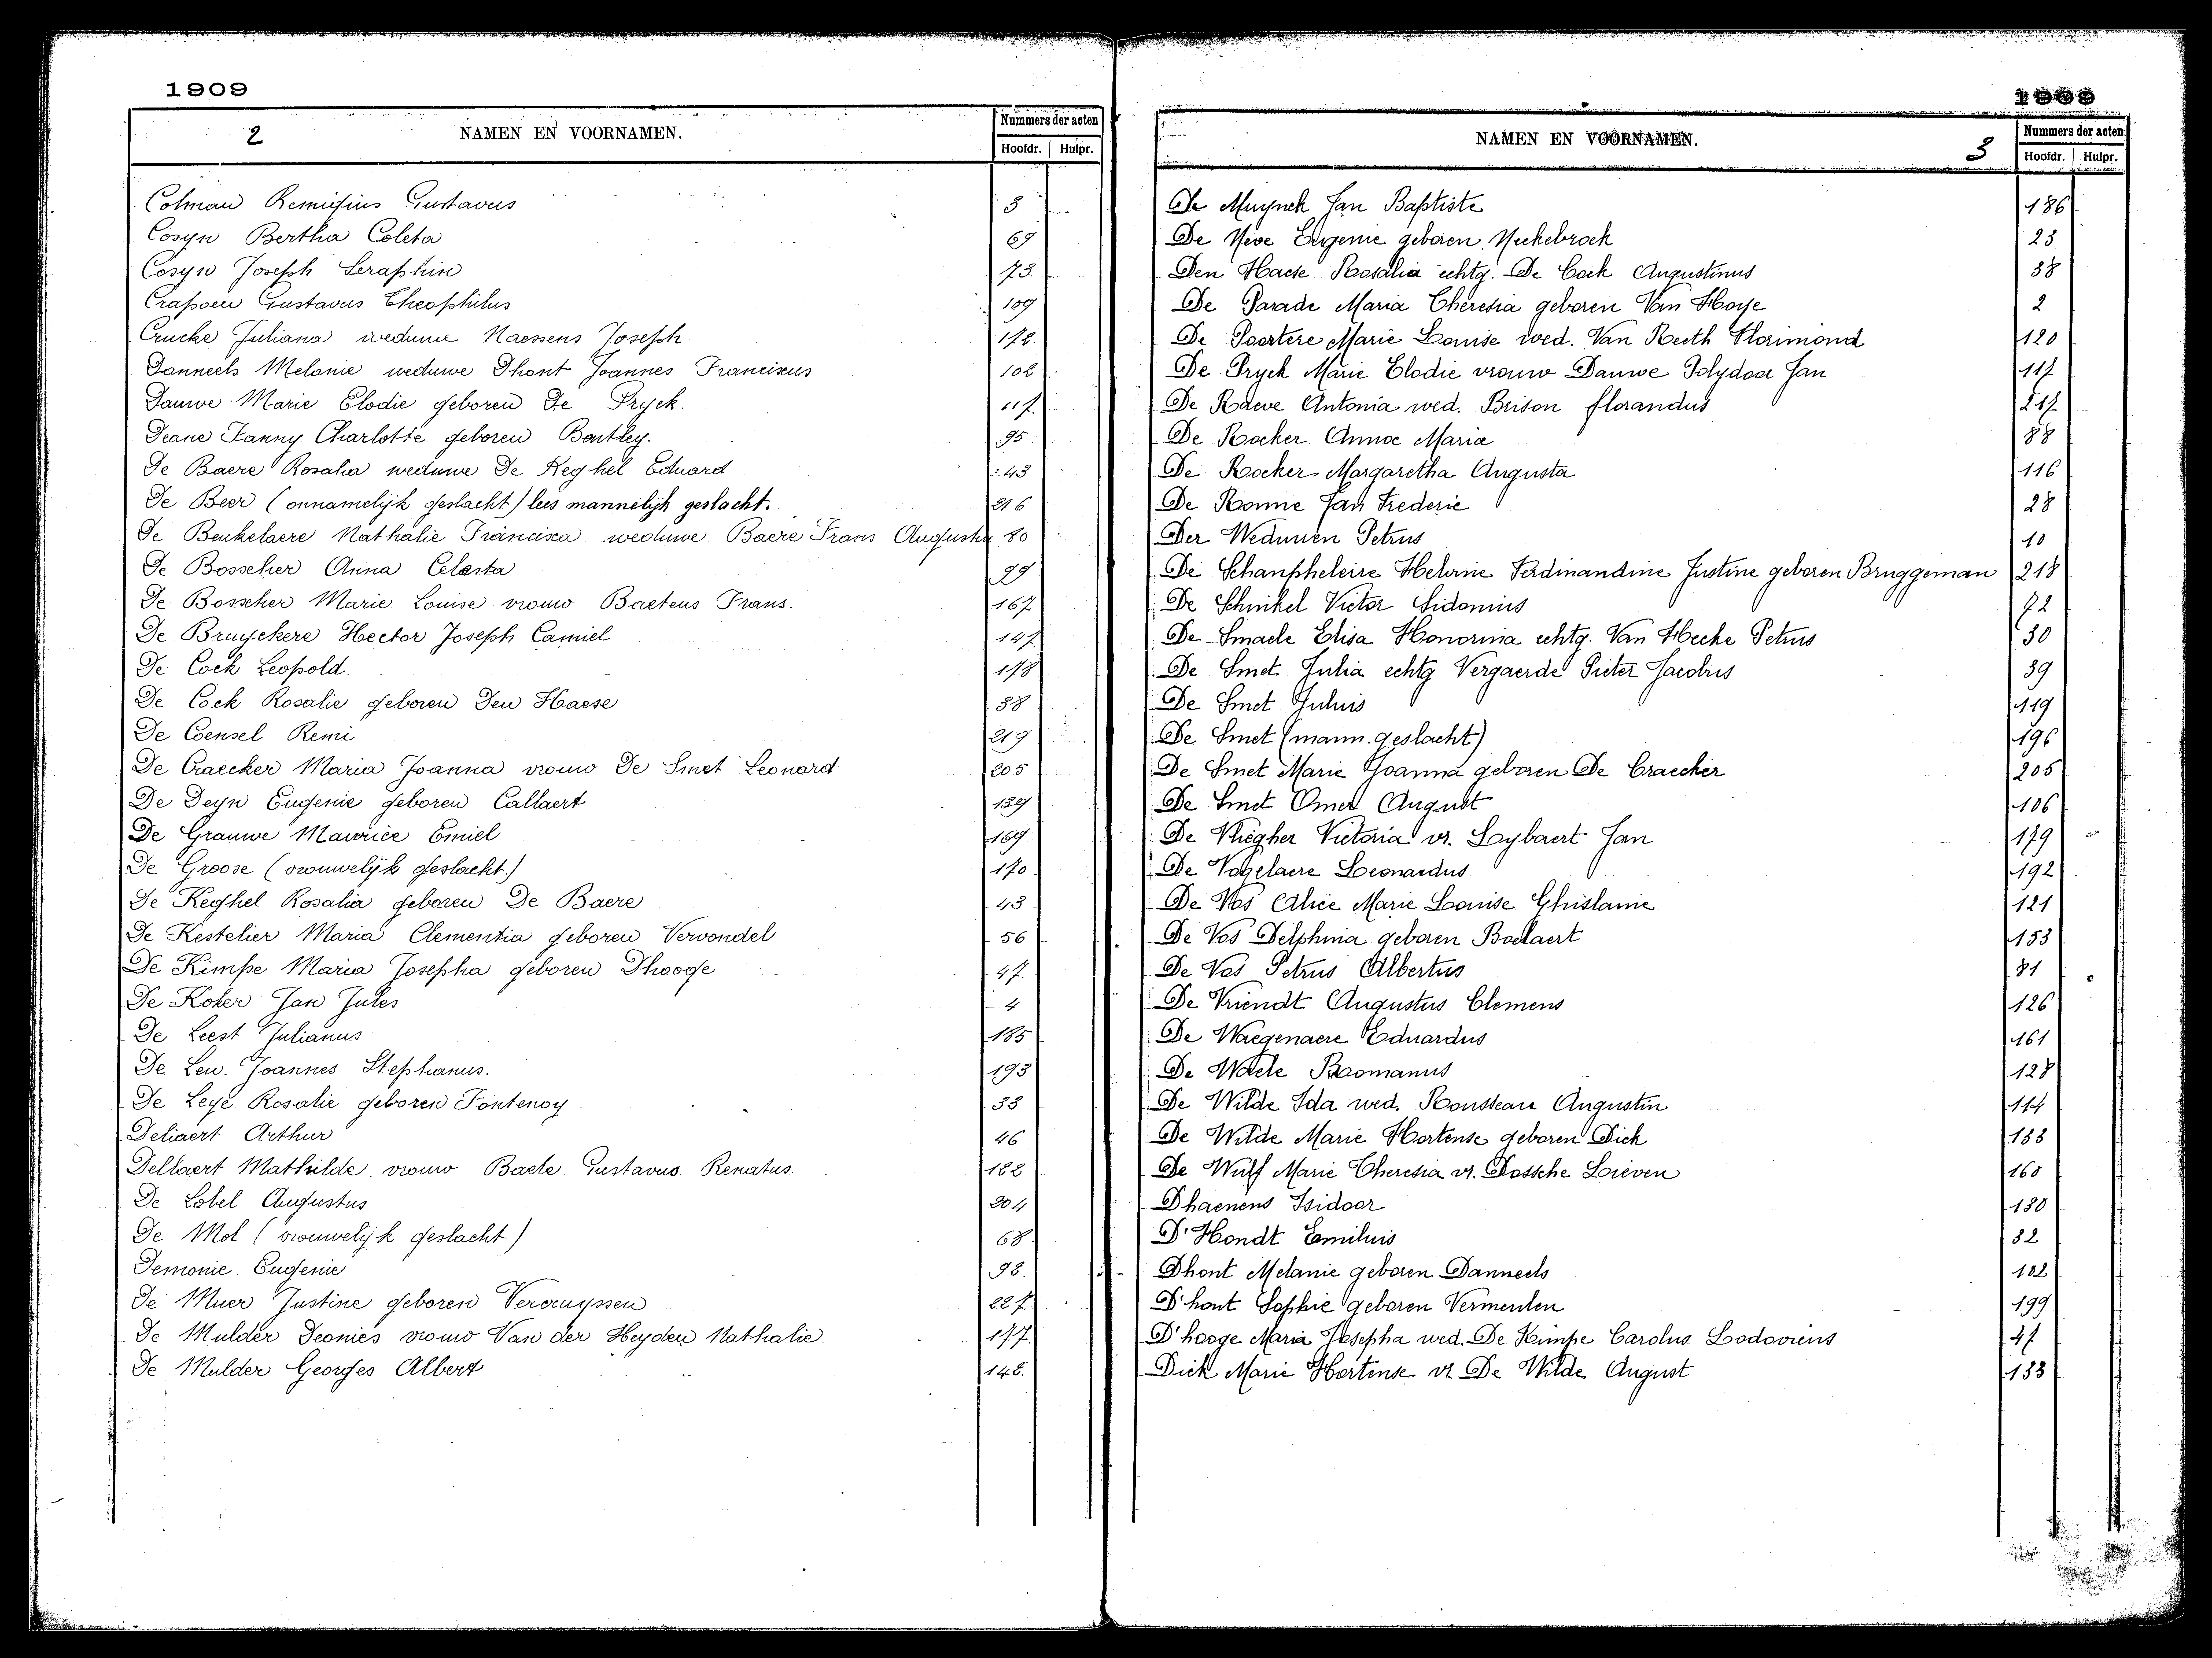 1909
2 NAMEN EN VOORNAMEN. Nummers der acten
Hoofdr. Hulpr.
Colman Remigius Gustavus 3
Cosyn Bertha Coleta 69
Cosyn Joseph Seraphin 73
Crapoen Gustavus Theophilus 109
Crucke Juliana weduwe Naessens Joseph 172
Danneels Melanie weduwe Dhont Joannes Franciscus 102
Dauwe Marie Elodie geboren De Pryck. 117
Deane Fanny Charlotte geboren Bentley. 95
De Baere Rosalia weduwe De Keghel Eduard 43
De Beer (onnamelijk geslacht) lees mannelijk geslacht. 216
De Beukelaere Nathalie Francisca weduwe Baere Frans Augustin 80
De Bosscher Anna Celesta 99
De Bosscher Marie Louise vrouw Baetens Frans. 167
De Bruyckere Hector Joseph Camiel 147
De Cock Leopold. 178
De Cock Rosalie geboren Den Haese 38
De Coensel Remi 219
De Craecker Maria Joanna vrouw De Smet Leonard 205
De Deyn Eugenie geboren Callaert 139
De Grauwe Maurice Emiel 169
De Groose (vrouwelijk geslacht.) 170
De Keghel Rosalia geboren De Baere 43
De Kestelier Maria Clementia geboren Vervondel 56
De Kimpe Maria Josepha geboren Dhooge 47
De Koker Jan Jules 4
De Leest Julianus 185
De Leu. Joannes Stephanus. 193
De Leye Rosalie geboren Fontenoy 33
Deliaert Arthur 46
Dellaert Mathilde vrouw Baele Gustavus Renatus. 122
De Lobel Augustus 204
De Mol (vrouwelijk geslacht) 68
Demonie Eugenie 98.
De Muer Justine geboren Vercruyssen 227
De Mulder Deonies vrouw Van der Heyden Nathalie. 177
De Mulder Georges Albert 148.
1909
NAMEN EN VOORNAMEN. 3 Nummers der acten
Hoofdr. Hulpr.
De Muynck Jan Baptiste 186
De Neve Eugenie geboren Neckebrock 23
Den Haese Rosalia echtg. De Cock Augustinus 38
De Parade Maria Theresia geboren Van Hoye 2
De Poortere Marie Louise wed. Van Reeth Florimond 120
De Pryck Marie Elodie vrouw Dauwe Polydoor Jan 117
De Raeve Antonia wed. Brison florandus 217
De Rocker Anna Maria 88
De Rocker Margaretha Augusta 116
De Ronne Jan Frederic 28
Der Weduwen Petrus 10
De Schampheleire Helvrie Ferdinandine Justine geboren Bruggeman 218
De Schinkel Victor Sidonius 72
De Smaele Elisa Honorina echtg. Van Hecke Petrus 30
De Smet Julia echtg Vergaerde Pieter Jacobus 39
De Smet Julius 119
De Smet (mann. geslacht) 196
De Smet Marie Joanna geboren De Craecker 205
De Smet Omer August 106
De Vliegher Victoria vr. Loybaert Jan 179
De Vogelaere Leonardus 192
De Vos Alice Marie Louise Ghislanie 121
De Vos Delphina geboren Boelaert 153
De Vos Petrus Albertus 81
De Vriendt Augustus Clemens 126
De Waegenaere Eduardus 161
De Waele Romanus 128
De Wilde Ida wed. Rousseau Augustin 114
De Wilde Marie Hortense geboren Dick 133
De Wulf Marie Theresia vr. Dossche Lieven 160
Dhaenens Isidoor 180
D'Hondt Emilius 32
Dhont Melanie geboren Danneels 102
D'hont Sophie geboren Vermeulen 199
D'hooge Maria Josepha wed. De Kimpe Carolus Lodovicus 47
Dick Marie Hortense vr. De Wilde August 133